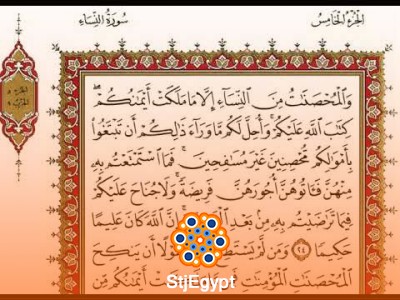 الجزء الخامس
سورة النساء
وَالْمُحْصَنَاتُ مِنَ النِّسَاءِ إِلَّا مَا مَلَكَتْ أَيْمَانُكُمْ
كِتَابَ اللَّهِ عَلَيْكُمْ وَأُحِلَّ لَكُم مَّا وَرَاءَ ذَلِكُمْ أَن تَبْتَغُوا
بِأَمْوَالِكُم مُّحْصِنِينَ غَيْرَ مُسَافِحِينَ فَمَا اسْتَمْتَعْتُم بِهِ
مِنْهُنَّ فَآتُوهُنَّ أُجُورَهُنَّ فَرِيضَةً وَلَا جُنَاحَ عَلَيْكُمْ
فِيمَا تَرَاضَيْتُم بِهِ مِن بَعْدِ إِنَّ اللَّهَ كَانَ عَلِيمًا
حَكِيمًا ٢٤ وَمَن لَّمْ يَسْتَطِعْ أَن يَنكِحَ
الْمُحْصَنَاتِ الْمُؤْمِنَاتِ أَيْمَانُكُم مِّن
StjEgypt